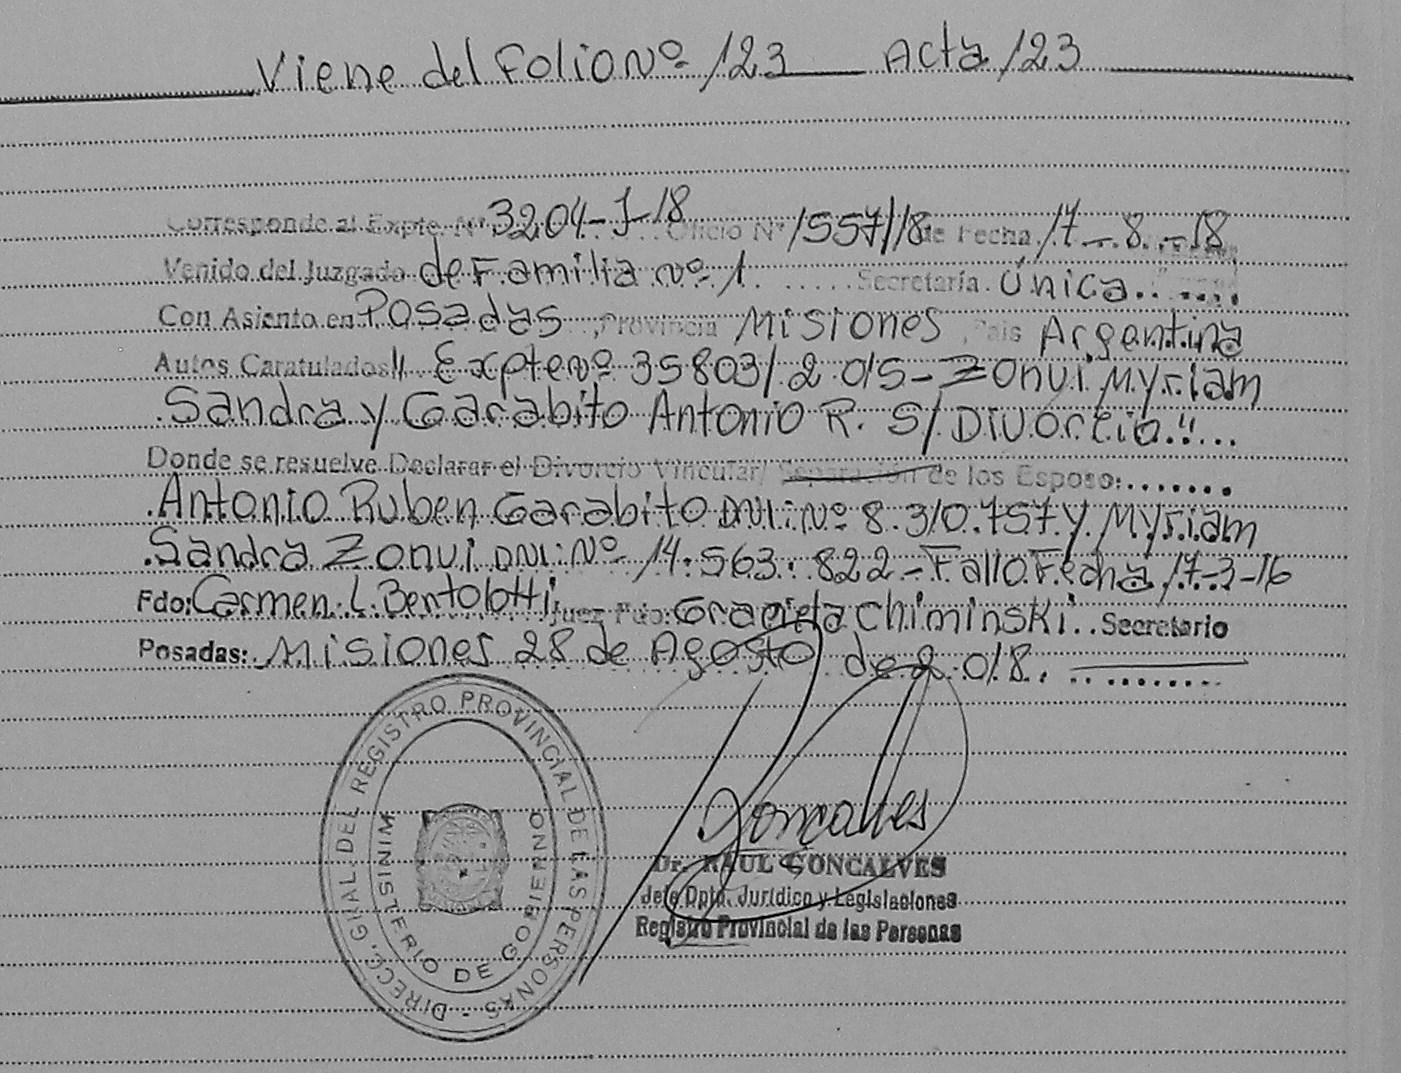 Viene del Folio Nº 123 Acta 123
Corresponde al Expte. Nº 3204-J-18 Oficio Nº 1557/18 de Fecha 17-8-18
Venido del Juzgado de Familia Nº 1 Secretaría Única
Con Asiento en Posadas, Provincia Misiones, País Argentina
Autos Caratulados "Expte Nº 35803/2015-Zonui Myriam
Sandra y Garabito Antonio R. S/ Divorcio."
Donde se resuelve Declarar el Divorcio Vincular/ Separación de los Esposo:
Antonio Ruben Garabito DNI: Nº 8.310.757 y Myriam
Sandra Zonui DNI: Nº 14.563.822-Fallo Fecha 17-3-16
Fdo: Carmen L. Bertolotti Juez Fdo: Graciela Chiminski.. Secretario
Posadas: Misiones 28 de Agosto de 2018.
DIRECC. GRAL. DEL REGISTRO PROVINCIAL DE LAS PERSONAS
MINISTERIO DE GOBIERNO
Goncalves
Dr. RAUL GONCALVES
Jefe Dpto. Jurídico y Legislaciones
Registro Provincial de las Personas